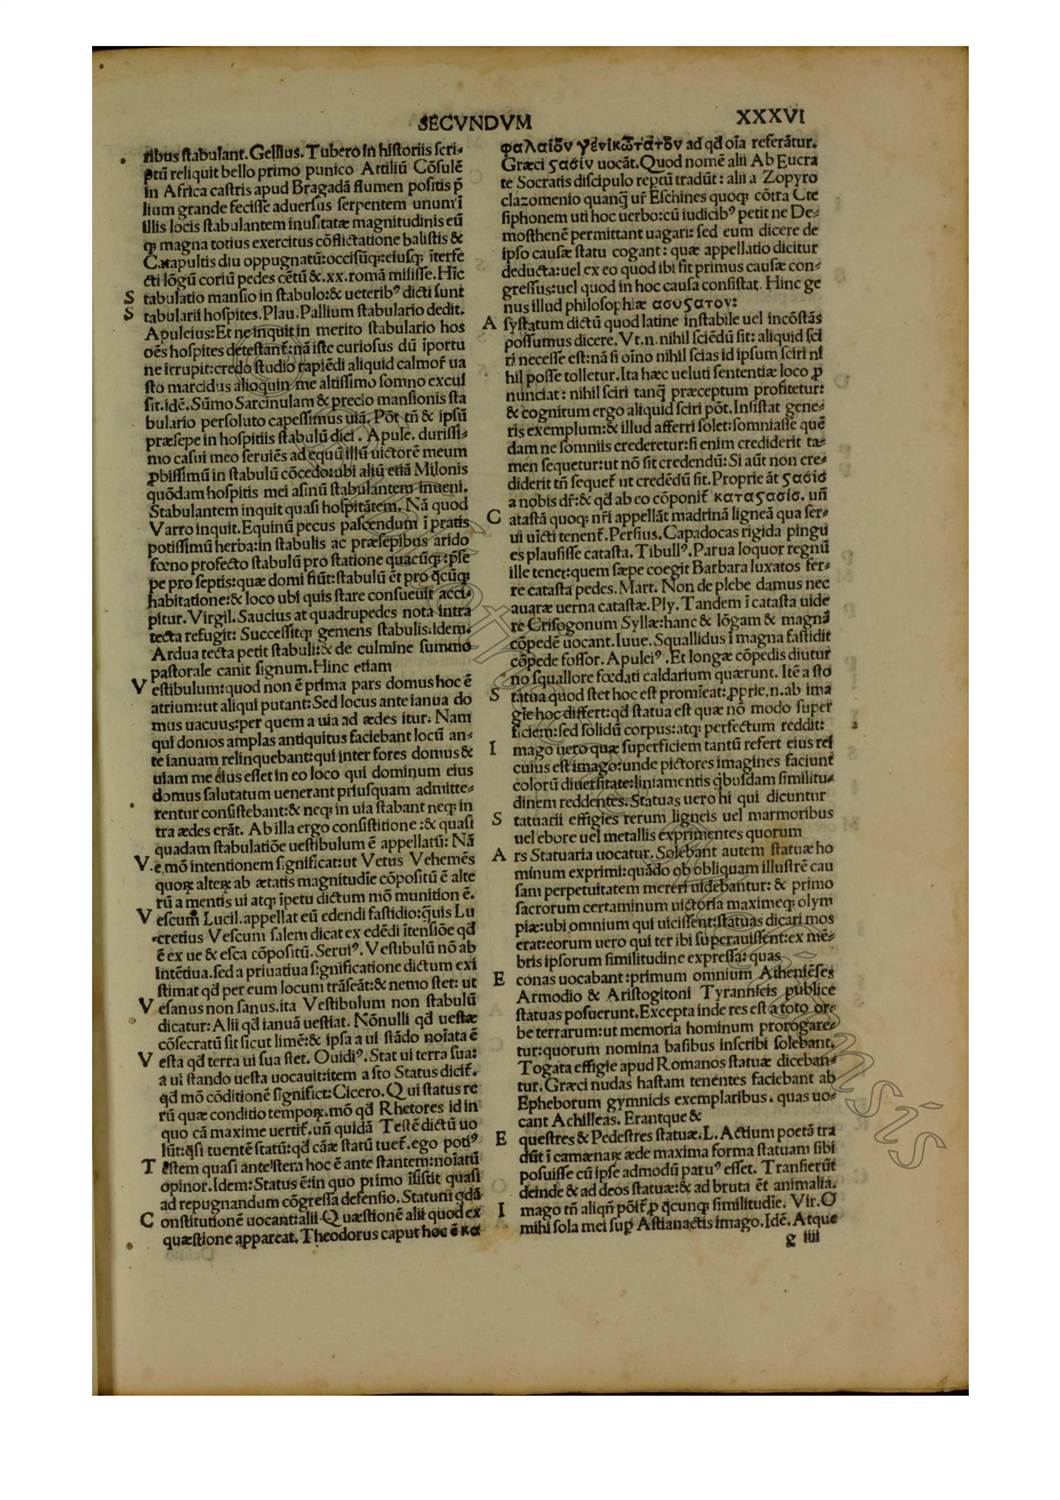 SECVNDVM
XXXVI
ribus ſtabulant. Gellius. Tubero in hiſtoriis ſcri⸗
ptū reliquit bello primo punico Attiliū Cōſulē
in Africa caſtris apud Bragadā flumen poſitis p̄
lium grande feciſſe aduerſus ſerpentem unum ī
illis locis ſtabulantem inuſitatæ magnitudinis eū
qꝫ magna totius exercitus cōflictatione baliſtis &
Catapultis diu oppugnatū: occiſūqꝫ: eiuſqꝫ īterfe
cti lōgū coriū pedes cētū &.xx. romā miſiſſe. Hic
S tabulatio manſio in ſtabulo: & ueteribꝰ dicti ſunt
S tabularii hoſpites. Plau. Pallium ſtabulario dedit.
Apuleius: Et ne inquit in merito ſtabulario hos
oēs hoſpites deteſtant᷑: nā iſte curioſus dū īportu
ne irrupit: credo ſtudio rapiēdi aliquid calmor᷑ ua
ſto marcidus alioquin me altiſſimo ſomno excuſ
ſit. idē. Sūmo Sarcinulam & precio manſionis ſta
bulario perſoluto capeſſimus uiā. Pōt tn̄ & ipſū
præſepe in hoſpitiis ſtabulū dici. Apule. duriſſi⸗
mo caſui meo ſeruiēs ad equū illū uictorē meum
ꝓbiſſimū in ſtabulū cōcedo: ubi aliū etiā Milonis
quōdam hoſpitis mei aſinū ſtabulantem inueni.
Stabulantem inquit quaſi hoſpitātem. Nā quod
Varro inquit. Equinū pecus paſcendum ī pratis
potiſſimū herba: in ſtabulis ac præſepibus arido
fœno profecto ſtabulū pro ſtatione quacūqꝫ: p̄ſe
pe pro ſeptis: quæ domi fiūt: ſtabulū ēt pro q̄cūqꝫ
habitatione: & loco ubi quis ſtare conſueuit acci⸗
pitur. Virgil. Saucius at quadrupedes nota intra
tecta refugit: Succeſſitqꝫ gemens ſtabulis. Idem.
Ardua tecta petit ſtabuli: & de culmine ſummo
paſtorale canit ſignum. Hinc etiam
V eſtibulum: quod non ē prima pars domus hoc ē
atrium: ut aliqui putant: Sed locus ante ianua do
mus uacuus: per quem a uia ad ædes itur. Nam
qui domos amplas antiquitus faciebant locū an⸗
te ianuam relinquebant: qui inter fores domus &
uiam medius eſſet in eo loco qui dominum eius
domus ſalutatum uenerant priuſquam admitte⸗
rentur conſiſtebant: & neqꝫ in uia ſtabant neqꝫ in
tra ædes erāt. Ab illa ergo conſiſtitione: & quaſi
quadam ſtabulatiōe ueſtibulum ē appellatū: Nā
V .e. mō intentionem ſignificat: ut Vetus Vehemēs
quoꝝ alteꝝ ab ætatis magnitudīe cōpoſitū ē alte
rū a mentis ui atqꝫ īpetu dictum mō munition ē.
V eſcum Lucil. appellat eū edendi faſtidio: q̄uis Lu
cretius Veſcum ſalem dicat ex edēdi ītenſiōe qd
ē ex ue & eſca cōpoſitū. Seruiꝰ. Veſtibulū nō ab
intētiua. ſed a priuatiua ſignificatione dictum exi
ſtimat qd per eum locum trāſeāt: & nemo ſtet: ut
V eſanus non ſanus. ita Veſtibulum non ſtabulū
dicatur: Alii qd ianuā ueſtiat. Nōnulli qd ueſtæ
cōſecratū ſit ſicut limē: & ipſa a ui ſtādo noīata ē
V eſta qd terra ui ſua ſtet. Ouidiꝰ. Stat ui terra ſua:
a ui ſtando ueſta uocauit: item a ſto Status dicit᷑.
qd mō cōditionē ſignifict: Cicero. Qui ſtatus re
rū quæ conditio tempoꝝ. mō qd Rhetores id in
quo cā maxime uertit᷑. un̄ quidā Teſtē dictū uo
lūt: q̄ſi tuentē ſtatū: qd cāæ ſtatū tuet᷑. ego potiꝰ
T eſtem quaſi anteſtem hoc ē ante ſtantem: noīatū
opinor. Idem: Status ē: in quo primo īſiſtit quaſi
ad repugnandum cōgreſſa defenſio. Statum qdā
C onſtitutionē uocant: alii Quæſtionē alii quod ex
quæſtione appareat. Theodorus caput hoc ē κα
φαλαίον γενικωτατον ad qd oīa referātur.
Græci ϛασίν uocāt. Quod nomē alii Ab Eucra
te Socratis diſcipulo reptū tradūt: alii a Zopyro
clazomenio quanq̄ ur᷑ Eſchines quoqꝫ cōtra Cte
ſiphonem uti hoc uerbo: cū iudicibꝰ petit ne De⸗
moſthenē permittant uagari: ſed eum dicere de
ipſo cauſæ ſtatu cogant: quæ appellatio dicitur
deducta: uel ex eo quod ibi ſit primus cauſæ con⸗
greſſus: uel quod in hoc cauſa conſiſtat. Hinc ge
nus illud philoſophiæ ασυϛατον:
A ſyſtatum dictū quod latine inſtabile uel incōſtās
poſſumus dicere. Vt. n. nihil ſciēdū ſit: aliquid ſci
ri neceſſe eſt: nā ſi oīno nihil ſcias id ipſum ſciri ni
hil poſſe tolletur. Ita hæc ueluti ſententiæ loco ꝓ
nunciat: nihil ſciri tanq̄ præceptum profitetur:
& cognitum ergo aliquid ſciri pōt. Inſiſtat gene⸗
ris exemplum: & illud afferri ſolet: ſomniaſſe quē
dam ne ſomniis crederetur: ſi enim crediderit ta⸗
men ſequetur: ut nō ſit credendū: Si aūt non cre⸗
diderit tn̄ ſequet᷑ ut credēdū ſit. Proprie āt ϛασίσ
a nobis dr᷑: & qd ab eo cōponit᷑ καταϛασίσ. un̄
C ataſtā quoqꝫ nr̄i appellāt madrinā ligneā qua ſer⸗
ui uicti tenent᷑. Perſius. Capadocas rigida pingui
es plauſiſſe cataſta. Tibullꝰ. Parua loquor regnū
ille tenet: quem ſæpe coegit Barbara luxatos fer⸗
re cataſta pedes. Mart. Non de plebe damus nec
auaræ uerna cataſtæ. Ply. Tandem ī cataſta uide
re Criſogonum Syllæ: hanc & lōgam & magnā
cōpedē uocant. Iuue. Squallidus ī magna faſtidit
cōpede foſſor. Apuleiꝰ. Et longæ cōpedis diutur
no ſquallore fœdati caldarium quærunt. Itē a ſto
S tatua quod ſtet hoc eſt promīeat: ꝓprie. n. ab ima
gīe hoc differt: qd ſtatua eſt quæ nō modo ſuper
ficiem: ſed ſolidū corpus: atqꝫ perfectum reddit:
I mago uero quæ ſuperficiem tantū refert eius rei
cuius eſt imago: unde pictores imagines faciunt
colorū diuerſitate: liniamentis q̄buſdam ſimilitu⸗
dinem reddentes. Statuas uero hi qui dicuntur
S tatuarii effigies rerum ligneis uel marmoribus
uel ebore uel metallis exprimentes quorum
A rs Statuaria uocatur. Solebant autem ſtatuæ ho
minum exprimi: quādo ob obliquam illuſtrē cau
ſam perpetuitatem mereri uidebantur: & primo
ſacrorum certaminum uictoria maximeqꝫ olym
piæ: ubi omnium qui uiciſſent: ſtatuas dicari mos
erat: eorum uero qui ter ibi ſuperauiſſent: ex mē⸗
bris ipſorum ſimilitudine expreſſa: quas
E conas uocabant: primum omnium Atheniēſes
Armodio & Ariſtogitoni Tyrannicis publice
ſtatuas poſuerunt. Excepta inde res eſt a toto or⸗
be terrarum: ut memoria hominum prorogare⸗
tur: quorum nomina baſibus inſcribi ſolebant.
Togata effigie apud Romanos ſtatuæ diceban⸗
tur. Græci nudas haſtam tenentes faciebant ab
Epheborum gymnicis exemplaribus. quas uo⸗
cant Achilleas. Erantque &
E queſtres & Pedeſtres ſtatuæ. L. Actium poetā tra
dūt ī camænaꝝ æde maxima forma ſtatuam ſibi
poſuiſſe cū ipſe admodū paruꝰ eſſet. Tranſierūt
deinde & ad deos ſtatuæ: & ad bruta ēt animalia.
I mago tn̄ aliqn̄ pōit᷑ ꝓ q̄cunqꝫ ſimilitudīe. Vir. O
mihi ſola mei ſuꝑ Aſtianactis imago. Idē. Atque
g iiii